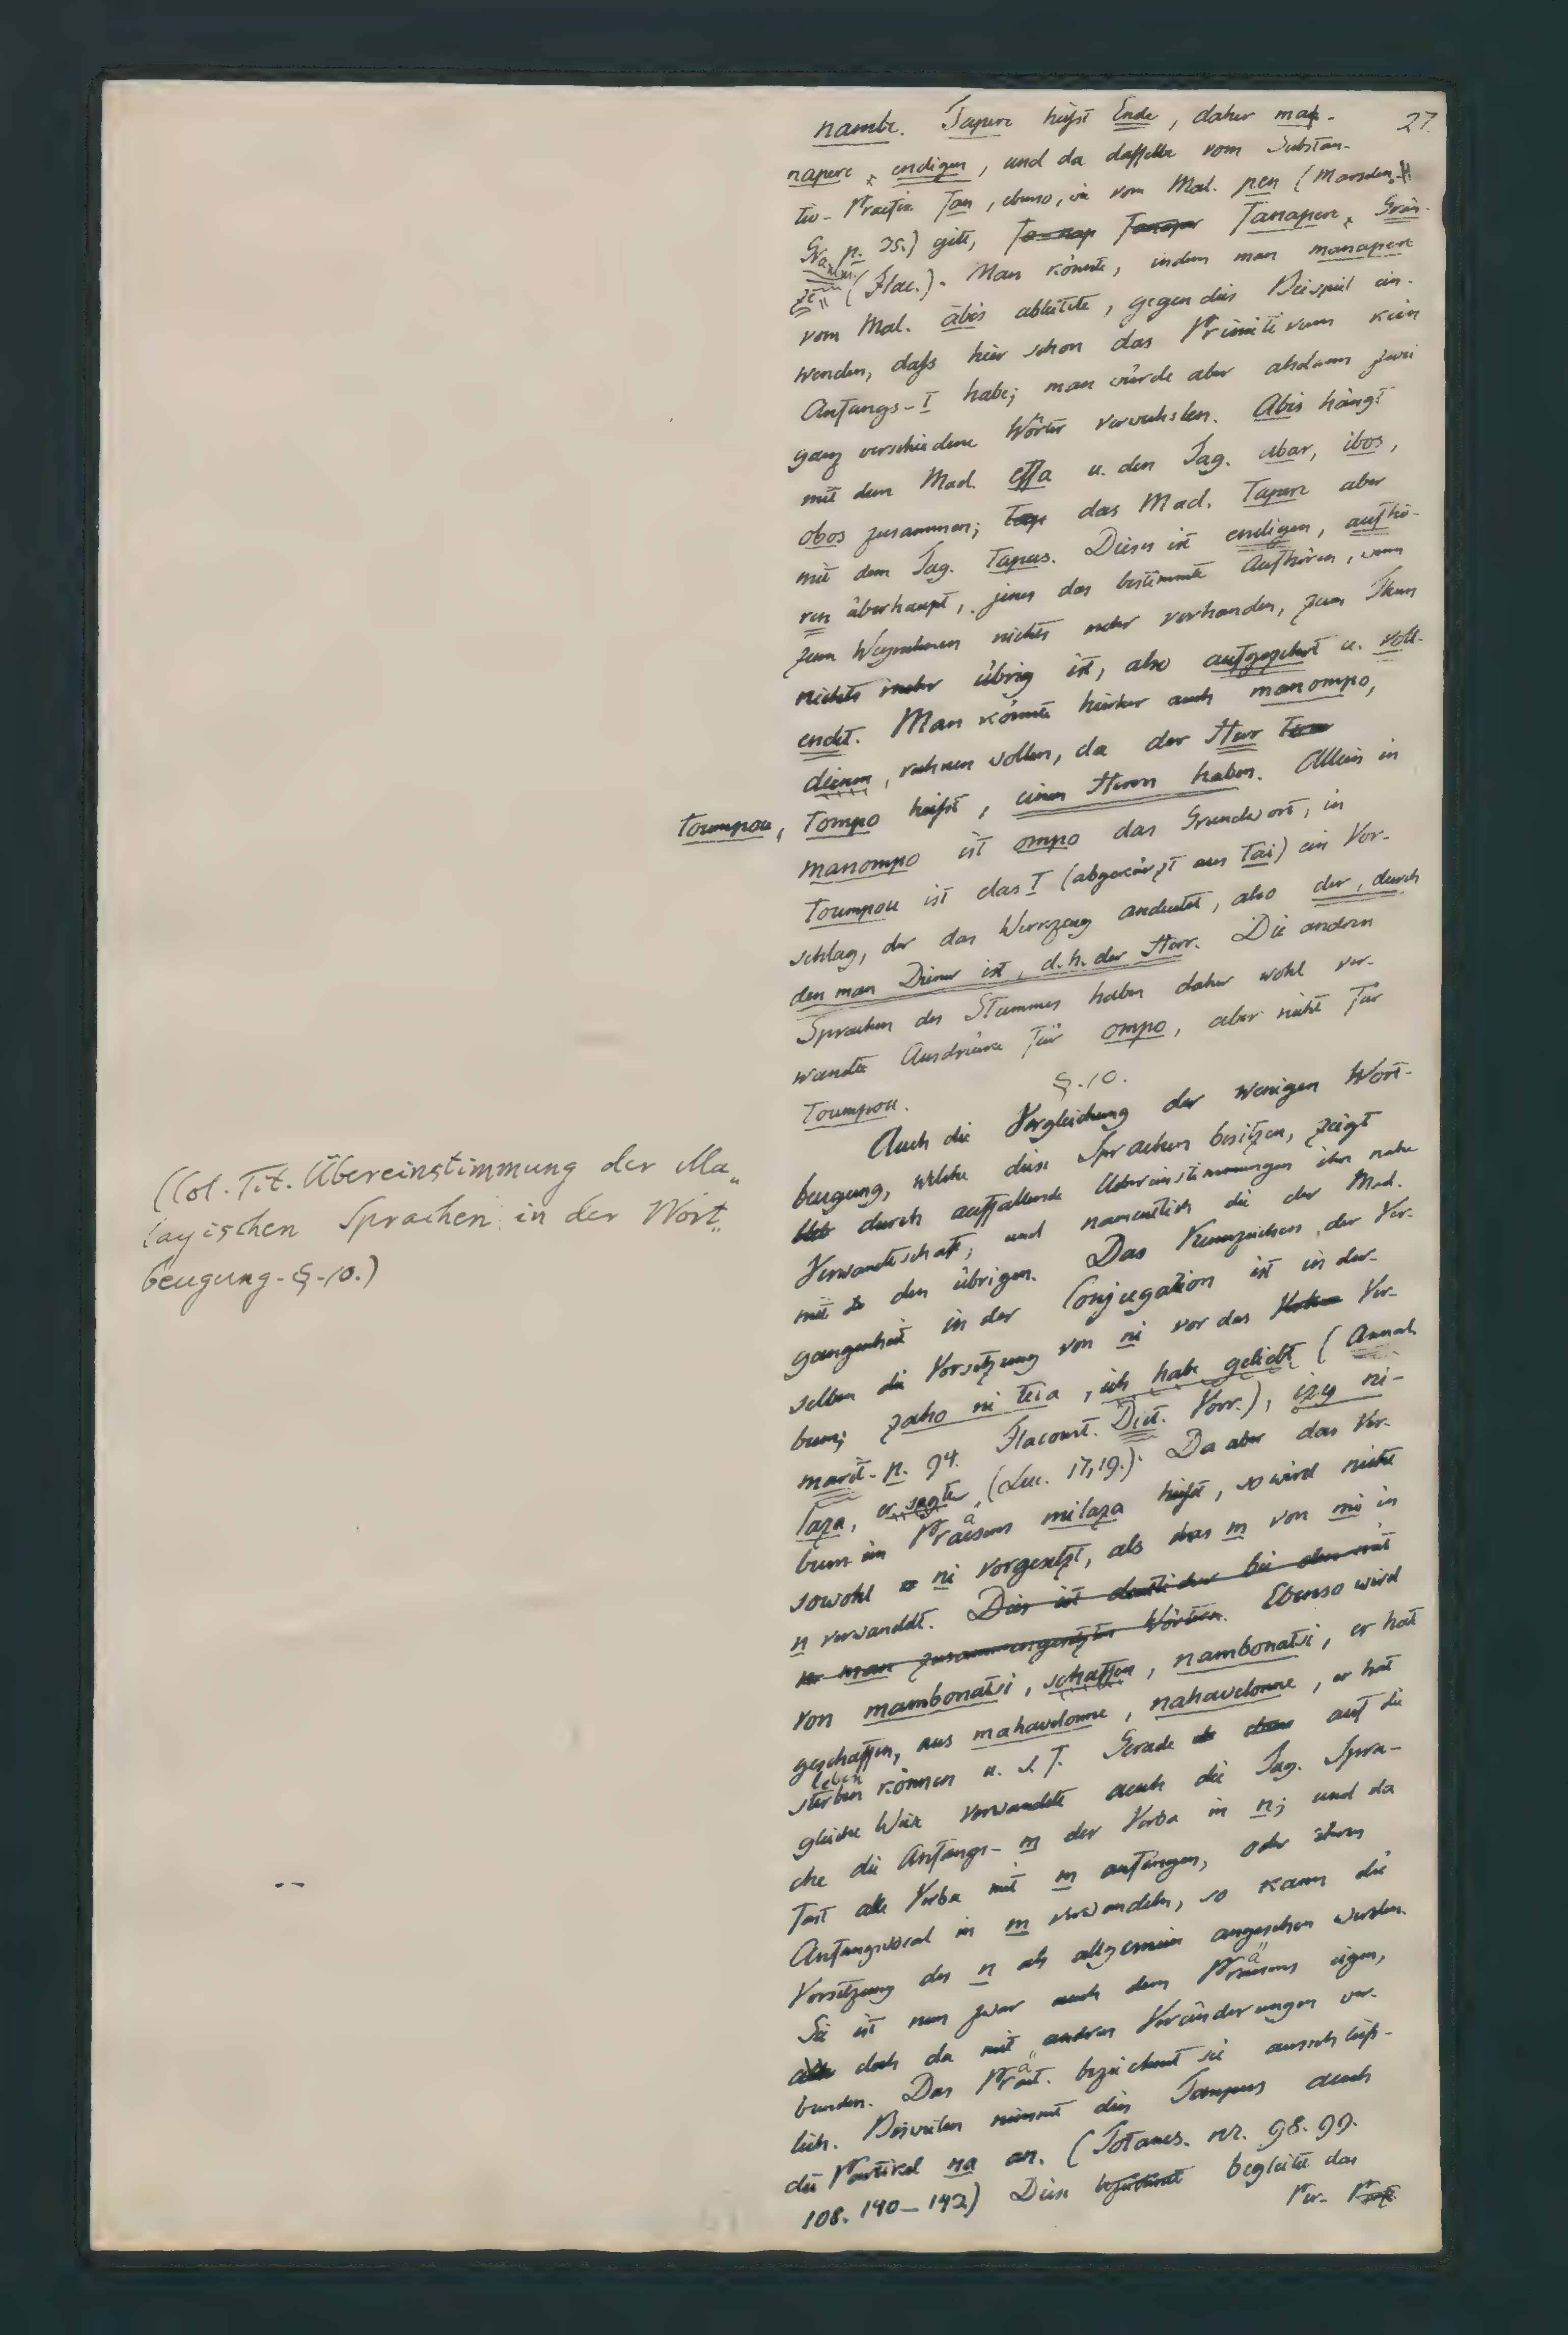 27.
nambe. Tapere heifst Ende, daher ma-
napere, endigen, und da dasselbe vom Substan-
tiv-Praefix fan, ebenso, wie vom Mal. pen (Marsden,
Gramm. p. 35.) gilt, Tanapere, Grän-
ze" (Flac.). Man könnte, indem man manapere
vom Mal. ābis ableitete, gegen dies Beispiel ein-
wenden, dafs hier schon das Primitivum kein
Anfangs-t habe; man würde aber alsdann zwei
ganz verschiedene Wörter verwechslen. Abis hängt
mit dem Mad. effa u. den Tag. ubar, ibos,
obos zusammen; das Mad. Tapere aber
mit dem Tag. Tapus. Dieses ist endigen, aufhö-
ren überhaupt, jenes das bestimmte Aufhören, wenn
zum Wegnehmen nichts mehr vorhanden, zum Thun
nichts mehr übrig ist, also aufgezehrt u. voll-
endet. Man könnte hierher auch manompo,
dienen, rechnen wollen, da der Herr
toumpou, Tompo heifst, einen Herrn haben. Allein in
manompo ist ompo das Grundwort, in
Toumpou ist das T (abgekürzt aus Tai) ein Vor-
schlag, der das Werkzeug andeutet, also der, durch
den man Diener ist, d. h. der Herr. Die andren
Sprachen des Stammes haben daher wohl ver-
wandte Ausdrücke für ompo, aber nicht für
Toumpou.
§. 10.
Auch die Vergleichung der wenigen Wort-
beugung, welche diese Sprachen besitzen, zeigt
durch auffallende Uebereinstimmungen ihre nahe
(Col. Tit. Übereinstimmung der Ma„
layischen Sprachen in der Wort„
beugung. §. 10.)
Verwandtschaft, und namentlich die der Mad.
mit den übrigen. Das Kennzeichen der Ver-
gangenheit in der Conjugation ist in der-
selben die Vorsetzung von ni vor das Ver-
bum; zaho ni teia, ich habe geliebt (Annal.
marit. p. 94. Flacourt. Dict. Vorr.), izy ni-
laza, er sagte, (Luc. 17, 19.). Da aber das Ver-
bum im Praesens milaza heifst, so wird nicht
sowohl ni vorgesetzt, als das m von mi in
n verwandelt. Dies ist deutlicher bei den mit
man zusammengesetzten Wörtern. Ebenso wird
von mambonatsi, schaffen, nambonatsi, er hat
geschaffen, aus mahavelonne, nahavelonne, er hat
leben können u. s. f. Gerade auf die
gleiche Weise verwandelt auch die Tag. Spra-
che die Anfangs-m der Verba in n; und da
fast alle Verba mit m anfangen, oder ihren
Anfangsvocal in m verwandeln, so kann die
Vorsetzung des n als allgemein angesehen werden.
Sie ist nun zwar auch dem Präsens eigen,
doch da mit andren Veränderungen ver-
bunden. Das Prät. bezeichnet sie ausschliefs-
lich. Bisweilen nimmt dies Tempus auch
die Partikel na an. (Totanes. nr. 98. 99.
108. 140–142) Diese begleitet das
Per-